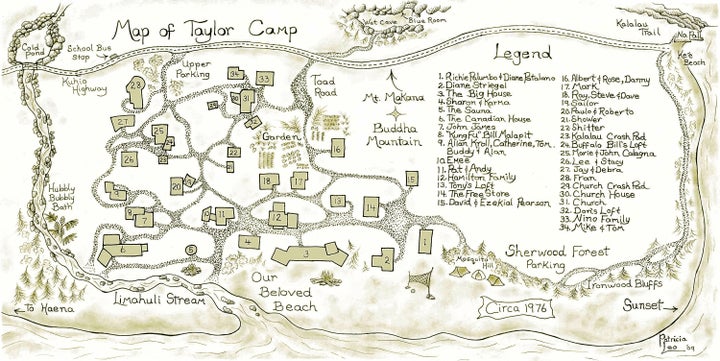 Map of Taylor Camp
Wet Cave
Blue Room
Kalalau
Trail
Na Pali
Ke'e
Beach
Cold
Pond
School Bus
Stop
Kuhio
Highway
Upper
Parking
Toad
Road
Mt. Makana
Buddha
Mountain
Garden
Hubbly
Bubbly
Bath
Legend
1. Richie Palumbo & Diane Patalano
2. Diane Striegel
3. The Big House
4. Sharon & Karma
5. The Sauna
6. The Canadian House
7. John James
8. "Kung Fu" Bill Malapit
9. Allan Kroll, Catherine, Tom,
Buddy & Alan
10. Emee
11. Pat & Andy
12. Hamilton Family
13. Tony's Loft
14. The Free Store
15. David & Ezekial Pearson
16. Albert & Rose, Danny
17. Mark
18. Roy, Steve & Dave
19. Sailor
20. Paulo & Roberto
21. Shower
22. Shitter
23. Kalalau Crash Pad
24. Buffalo Bill's Loft
25. Marie & John Calagna
26. Lee & Stacy
27. Jay & Debra
28. Fran
29. Church Crash Pad
30. Church House
31. Church
32. Don's Loft
33. Nino Family
34. Mike & Tom
34
33
28
30
31
27
25
23
21
26
22
16
20
19
18
17
15
9
13
14
8
7
11
12
6
5
4
3
2
1
Mosquito
Hill
Sherwood Forest
Parking
Ironwood Bluffs
Our
Beloved
Beach
Limahuli Stream
To Haena
Circa 1976
Sunset
Patricia